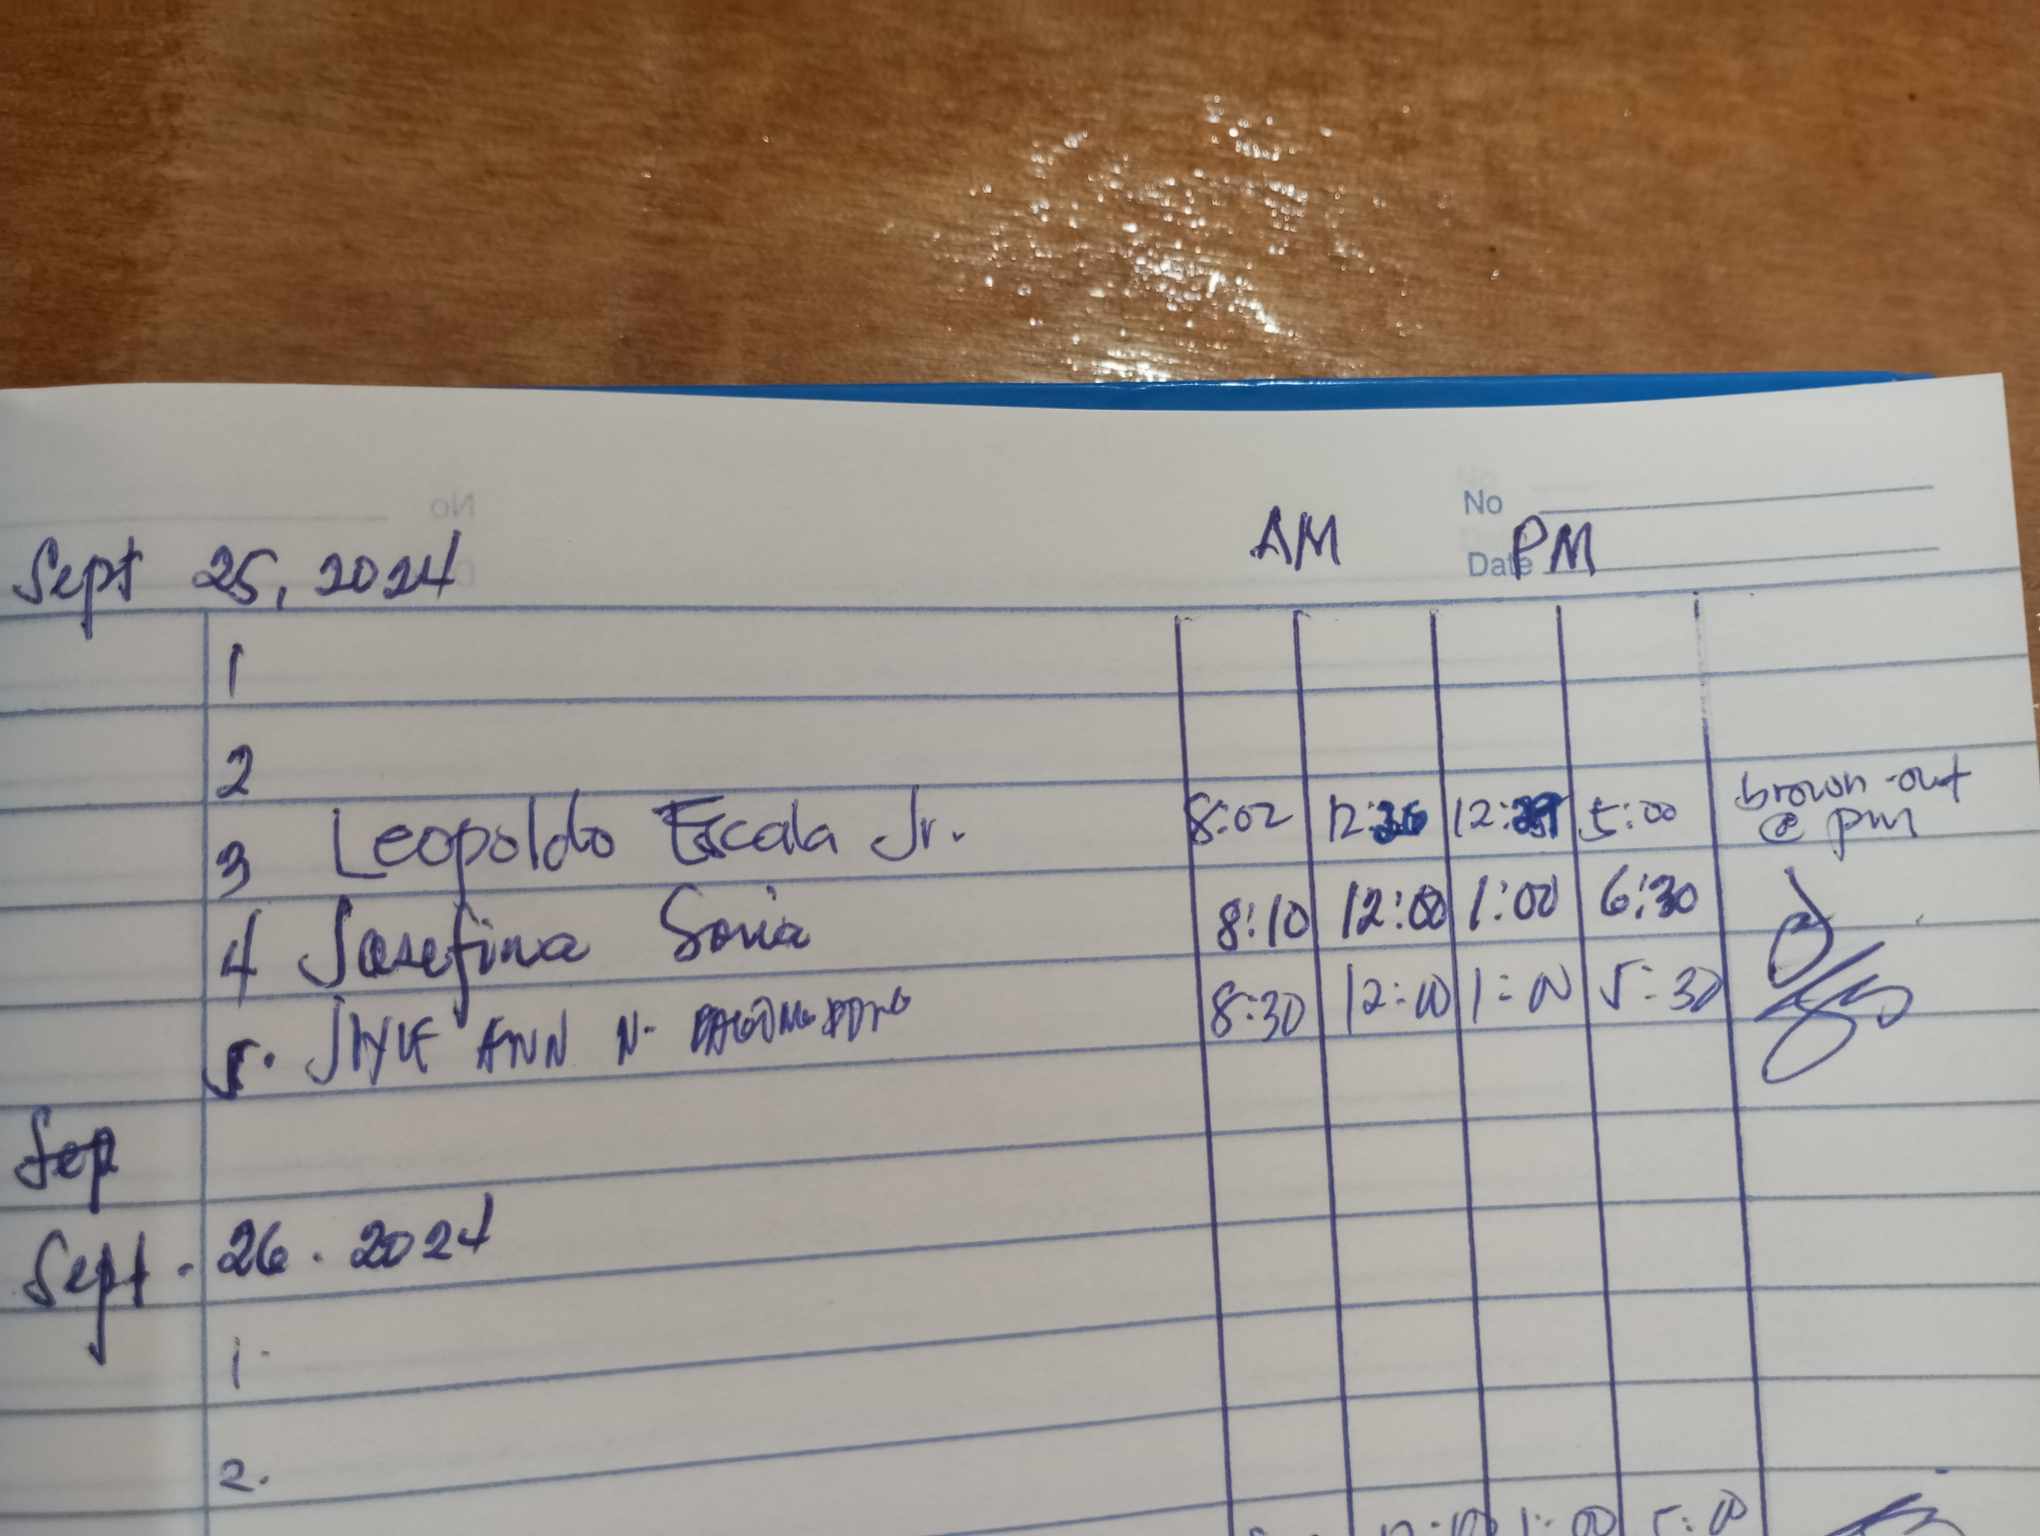 No
AM PM
Sept 25, 2024 Date
1
2
3 Leopoldo Escala Jr. 8:02 12:26 5:00 brown-out
@ pm
4 Josefina Soria 8:10 12:00 1:00 6:30
5. ANN N. 8:30 12:00 1:00 5:30
Sep
Sept. 26. 2024
1.
2.
1:00 5:00